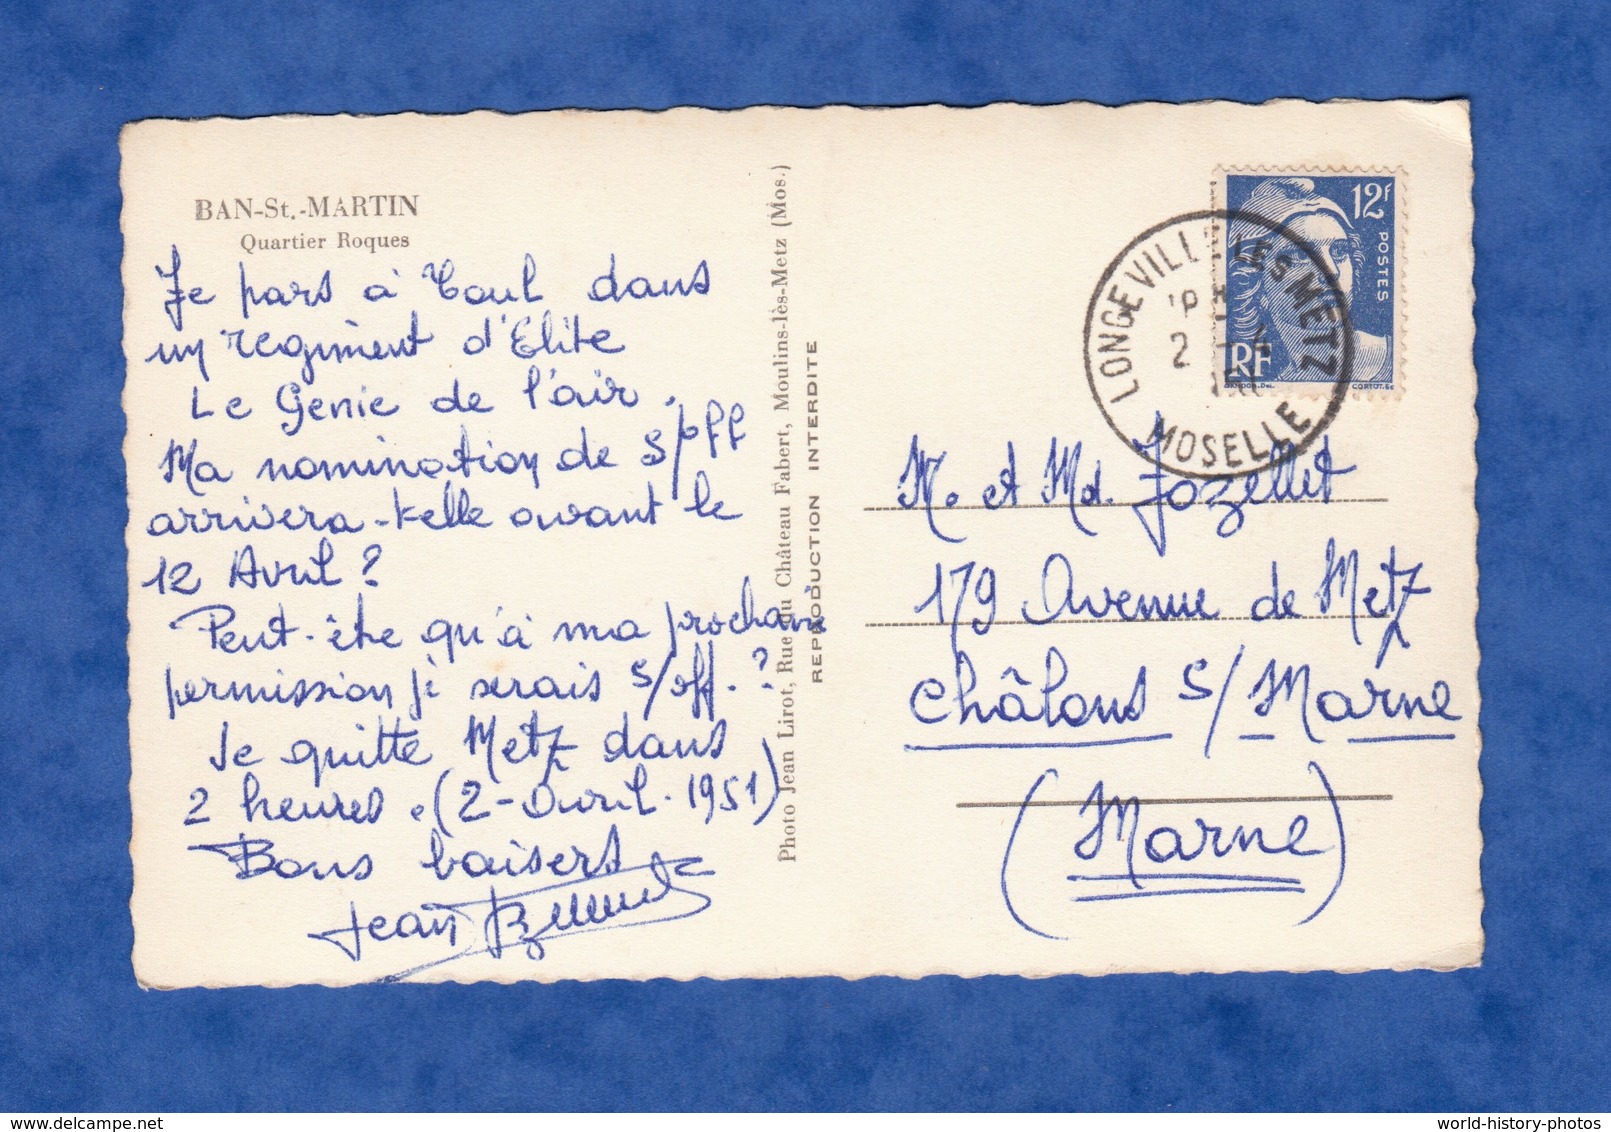 BAN-St.-MARTIN
Quartier Roques
Je pars à Toul dans
un régiment d'Elite
Le Génie de l'air.
Ma nomination de S/off
arrivera-t-elle avant le
12 Avril ?
Peut-être qu'à ma prochain
permission je serais S/off. ?
Je quitte Metz dans
2 heures. (2-Avril-1951)
Bons baisers
Jean
Photo Jean Lirot, Rue du Château Fabert, Moulins-lès-Metz (Mos.)
REPRODUCTION INTERDITE
LONGEVILLE LES METZ
2
MOSELLE
12F
POSTES
RF
GANDON.Del.
CORTOT.Sc
M. et Md. Jozellet
179 Avenue de Metz
Châlons S/ Marne
(Marne)
world-history-photos